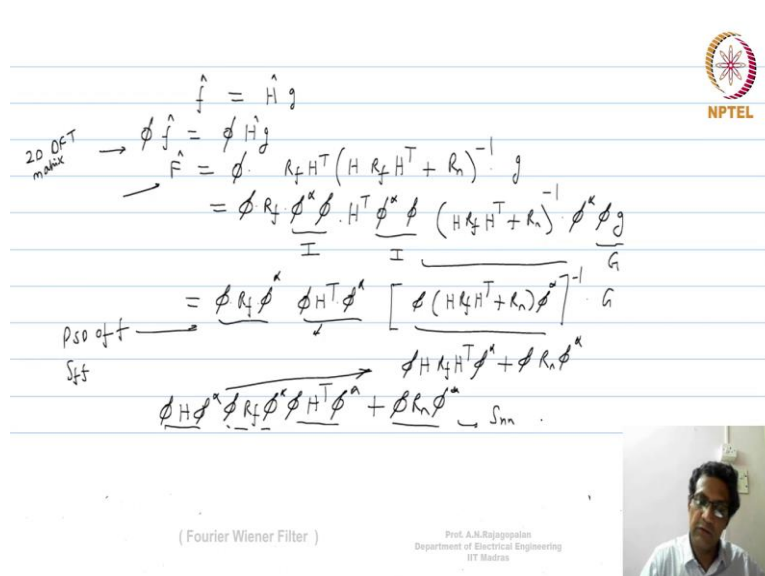 f̂ = Ĥ g
2D DFT matrix → φ f̂ = φ Ĥ g
→ F̂ = φ · R_f H^T ( H R_f H^T + R_n )^{-1} g
= φ · R_f · φ* φ · H^T φ* φ ( H R_f H^T + R_n )^{-1} · φ* φ g
I I G
= φ · R_f φ* φ H^T · φ* [ φ ( H R_f H^T + R_n ) φ* ]^{-1} · G
PSD of f →
S_ff
φ H R_f H^T φ* + φ R_n φ*
φ H φ* φ R_f φ* φ H^T φ* + φ R_n φ* → S_nn .
NPTEL
( Fourier Wiener Filter )
Prof. A.N.Rajagopalan
Department of Electrical Engineering
IIT Madras